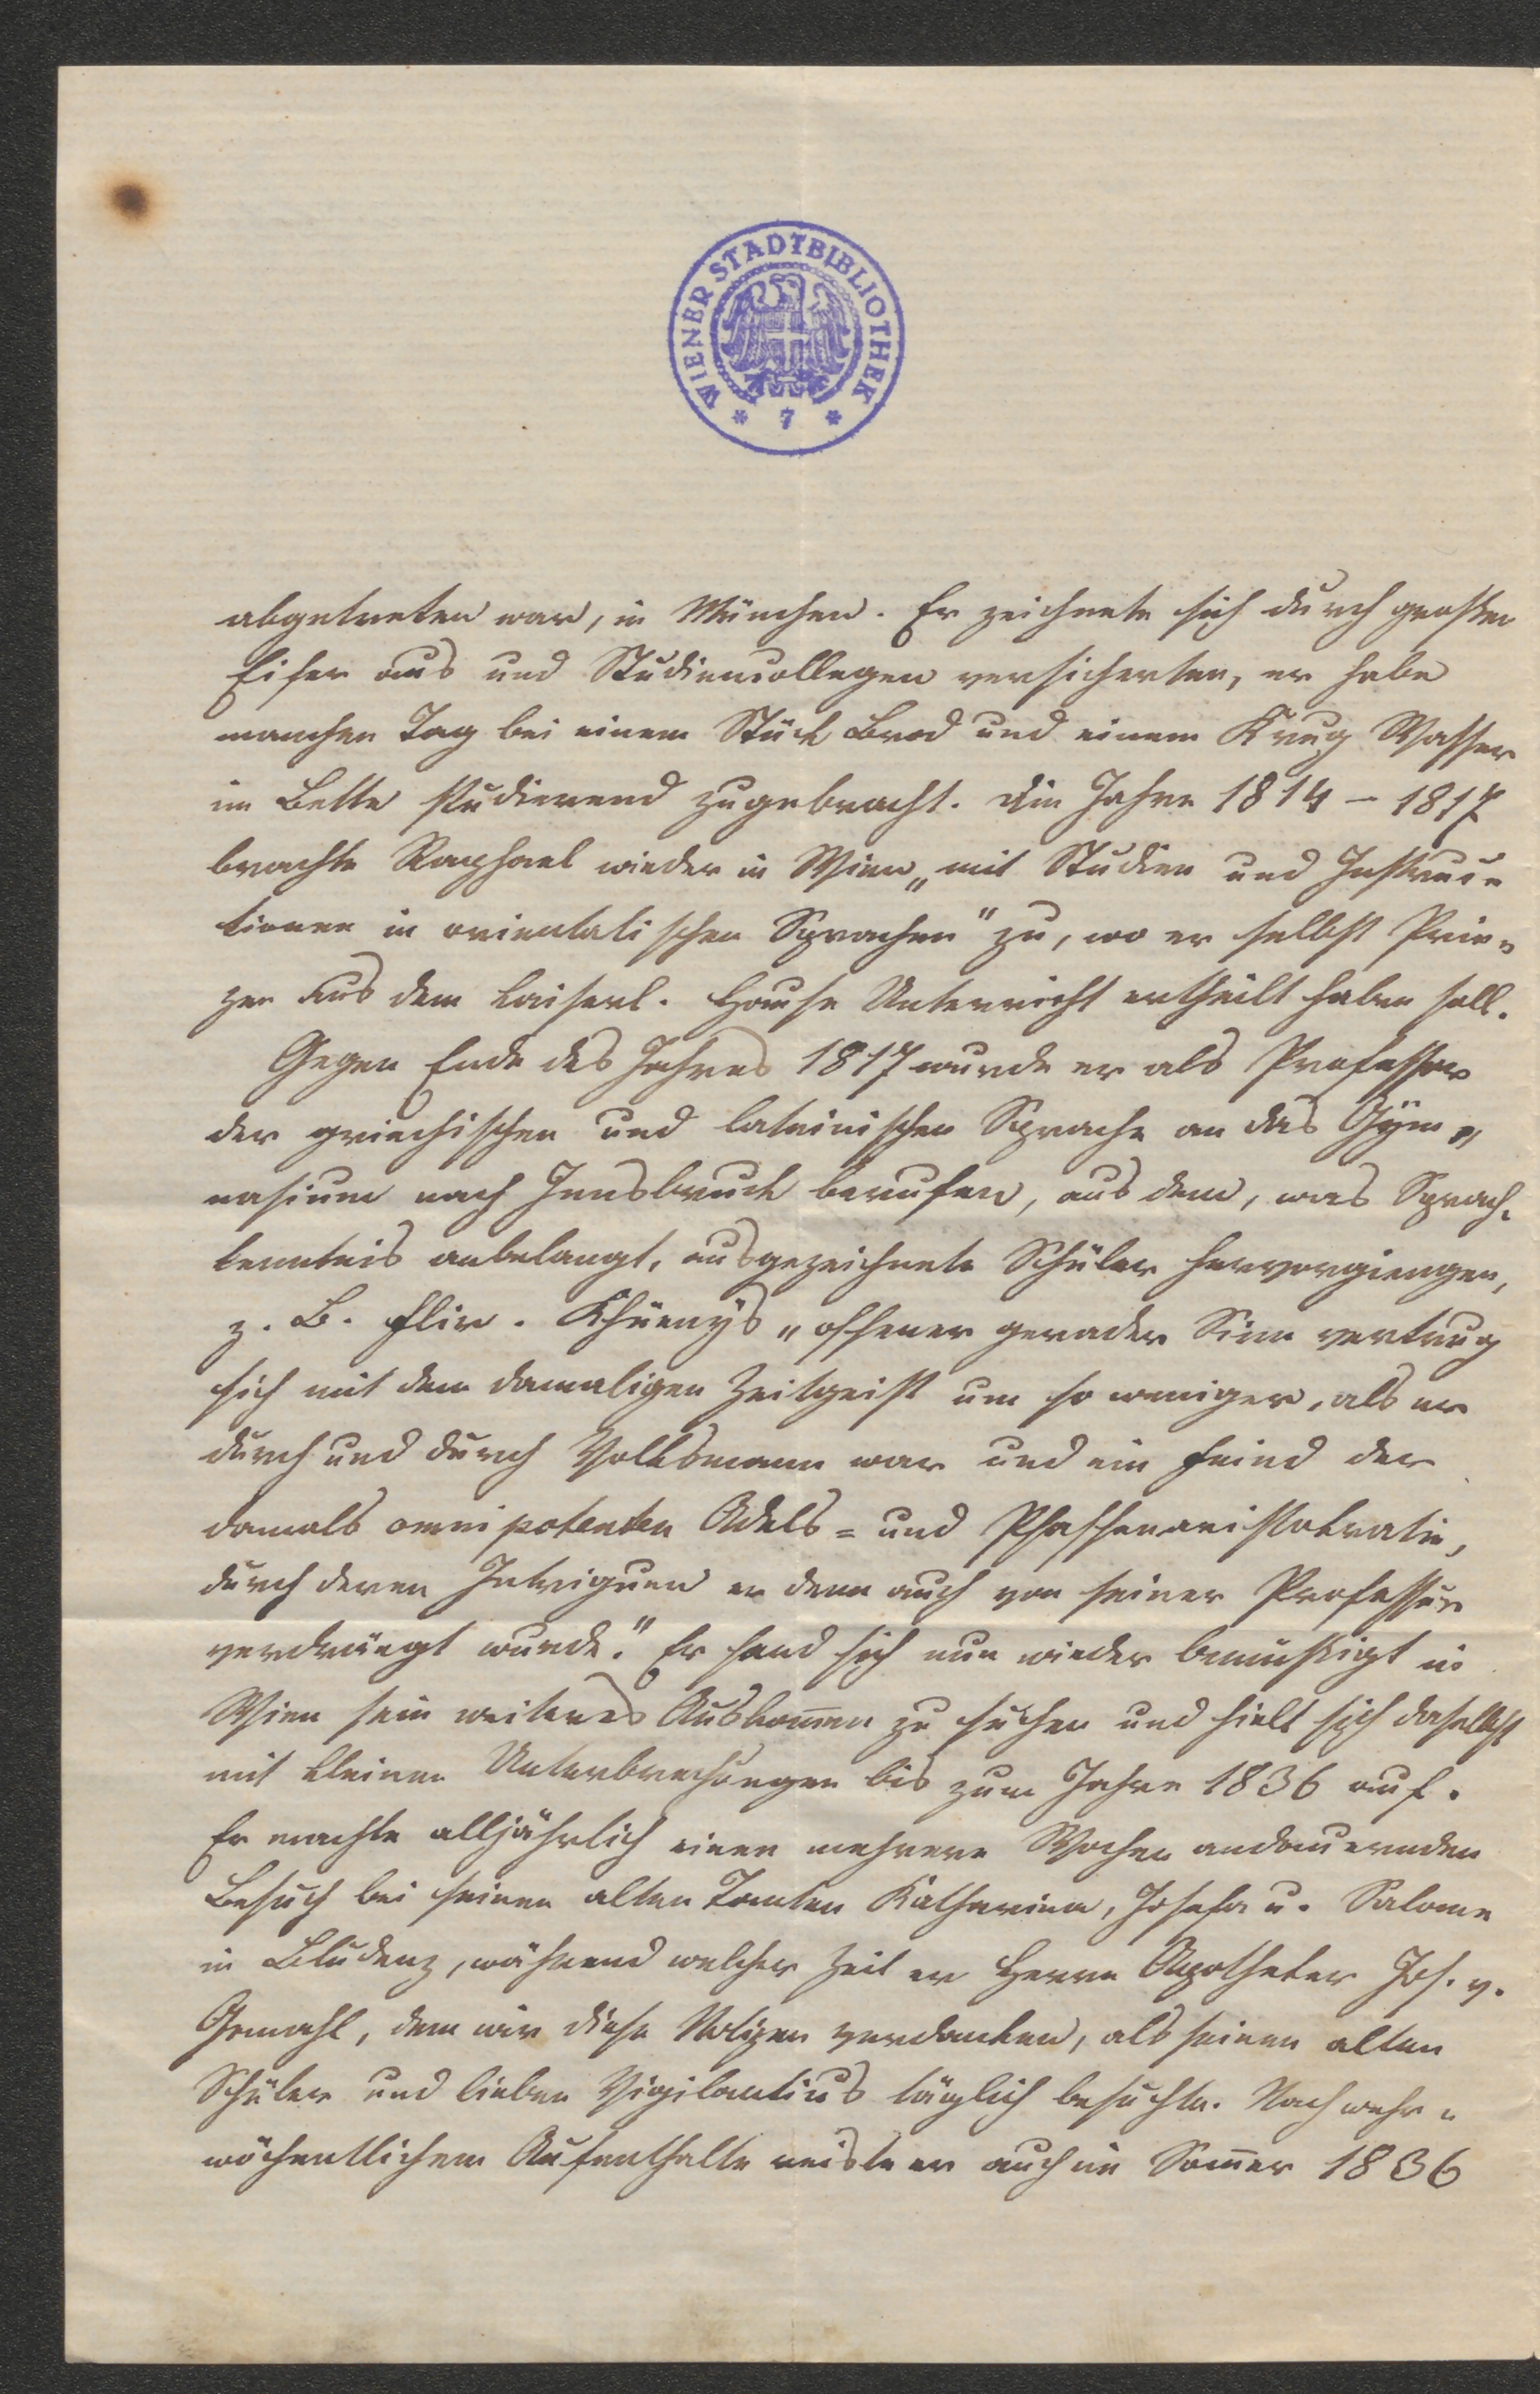 WIENER STADTBIBLIOTHEK
* 7 *
abgetreten war, in München. Er zeichnete sich durch großen
Eifer aus und Studiencollegen versicherten, er habe
manchen Tag bei einem Stück Brod und einem Krug Wasser
im Bette studierend zugebracht. Die Jahre 1814 – 1817
brachte Raphael wieder in Wien „mit Studien und Instruc=
tionen in orientalischen Sprachen" zu, wo er selbst Prin=
zen aus dem kaiserl. Hause Unterricht ertheilt haben soll.
Gegen Ende des Jahres 1817 wurde er als Professor
der griechischen und lateinischen Sprache an das Gym=
nasium nach Innsbruck berufen, aus dem, was Sprach=
kenntnis anbelangt, ausgezeichnete Schüler hervorgiengen,
z. B. Flir. Khüenys „offener gerader Sinn vertrug
sich mit dem damaligen Zeitgeist um so weniger, als er
durch und durch Volksmann war und ein Feind der
damals omnipotenten Adels= und Pfaffenaristokratie,
durch deren Intriguen er denn auch von seiner Professur
verdrängt wurde." Er fand sich nun wieder bemüßigt in
Wien sein weiteres Auskom̅en zu suchen und hielt sich daselbst
mit kleinen Unterbrechungen bis zum Jahre 1836 auf.
Er machte alljährlich einen mehrere Wochen andauernden
Besuch bei seinen alten Tanten Katharina, Josefa u. Salome
in Bludenz, während welcher Zeit er Herrn Apotheker Jos. v.
Gmachl, dem wir diese Notizen verdanken, als seinen alten
Schüler und lieben Vigilantius täglich besuchte. Nach mehr=
wöchentlichem Aufenthalte reiste er auch im Som̅er 1836